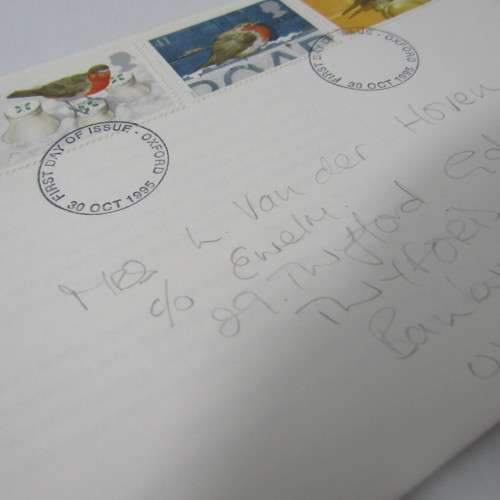 FIRST DAY OF ISSUE - OXFORD
30 OCT 1995
FIRST DAY OF ISSUE - OXFORD
30 OCT 1995
MRS L. Van der Hoven
c/o Ewelm.
29. Twyford Gd
TWYFORD
Banbu